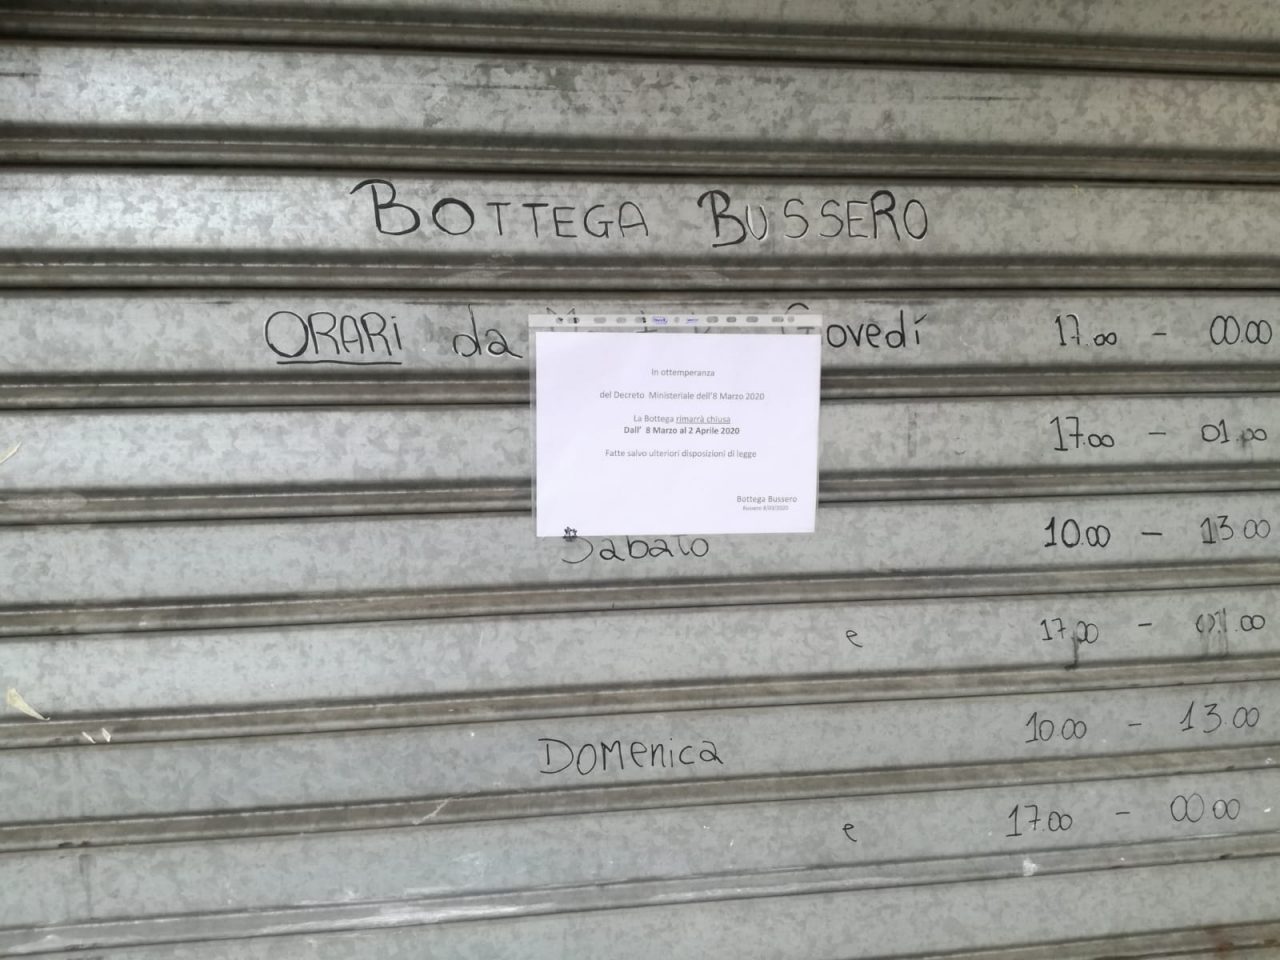 BOTTEGA BUSSERO
ORARI da Giovedí 17.00 - 00.00
In ottemperanza
del Decreto Ministeriale dell'8 Marzo 2020
La Bottega rimarrà chiusa
Dall' 8 Marzo al 2 Aprile 2020
Fatte salvo ulteriori disposizioni di legge
Bottega Bussero
Bussero 8/03/2020
17.00 - 01.00
Sabato 10.00 - 13.00
e 17.00 - 01.00
DOMENICA 10.00 - 13.00
e 17.00 - 00.00